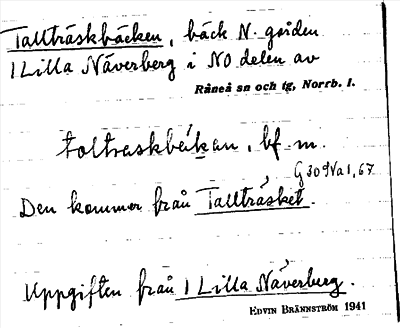 Tallträskbäcken, bäck N. gården
1 Lilla Näverberg i NO delen av
Råneå sn och tg, Norrb. l.
taltraskbäkan, bf. m.
G309Va1, 67
Den kommer från Tallträsket.
Uppgiften från 1 Lilla Näverberg.
EDVIN BRÄNNSTRÖM 1941